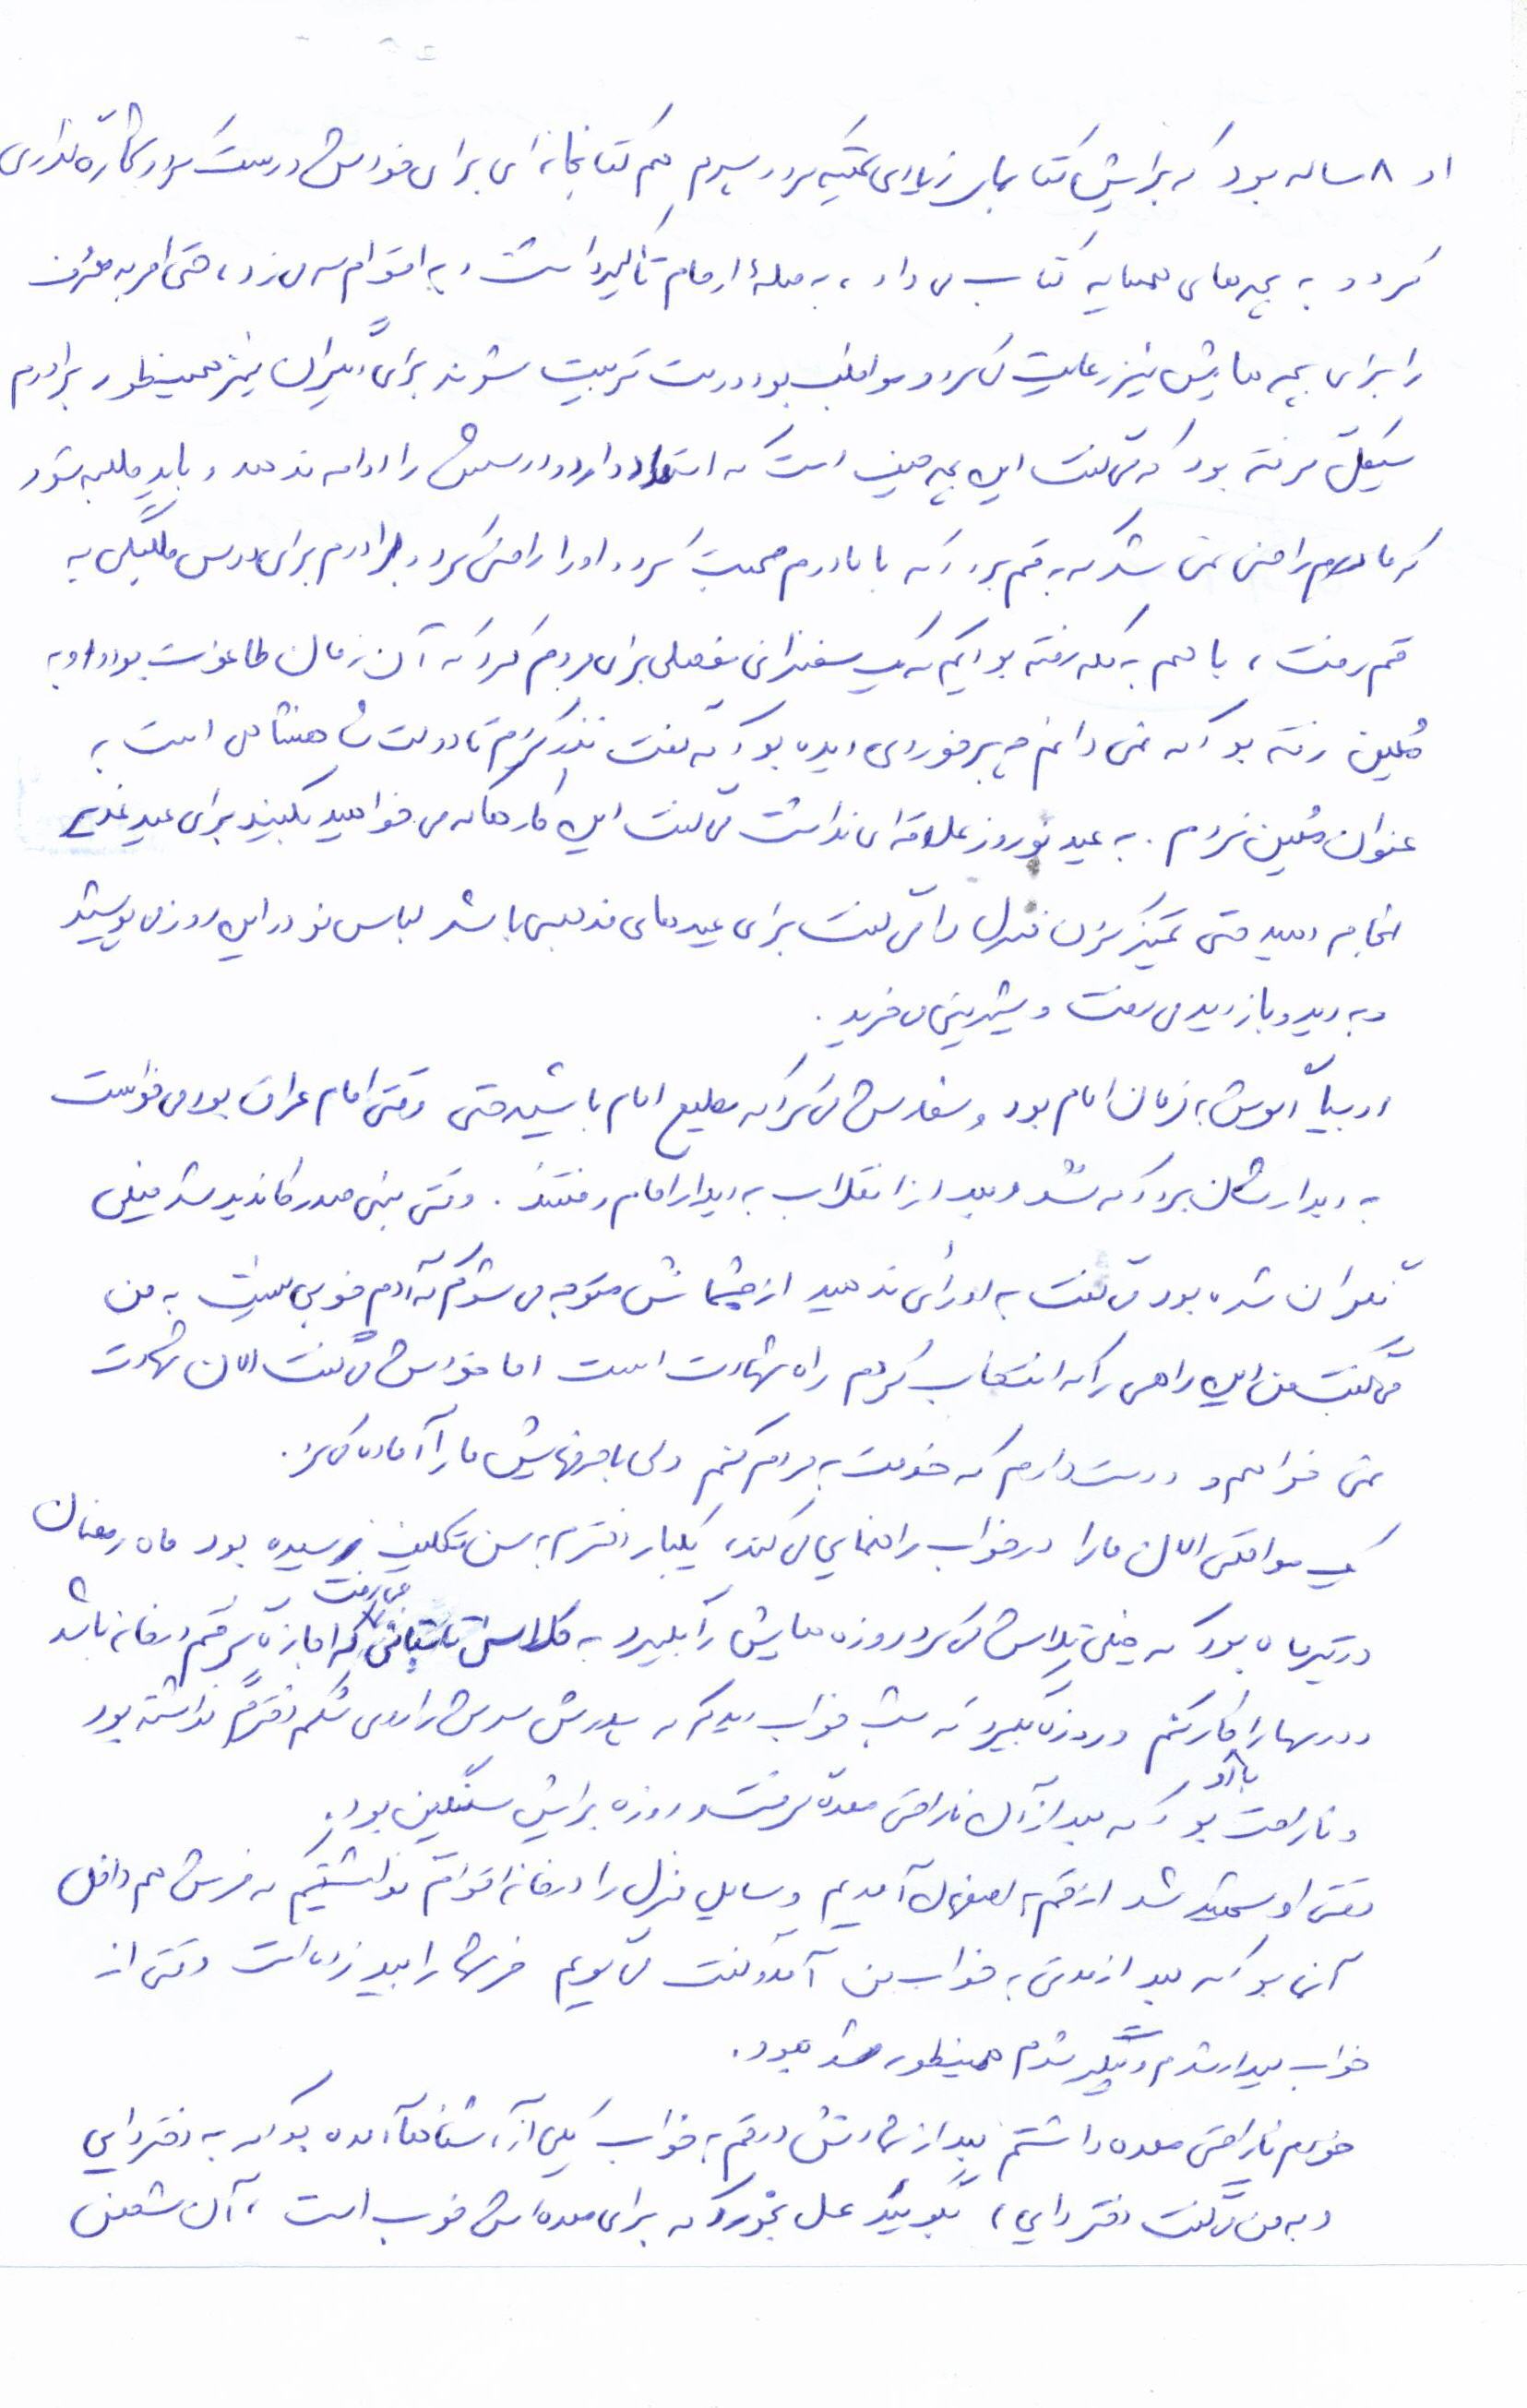 او ۸ ساله بود که برایش کتابهای زیادی تهیه کرد و پسرم هم کتابخانه‌ای برای خودش درست کرد و شماره گذاری
کرد و به بچه‌های همسایه کتاب می داد، به صلهٔ ارحام تاکید داشت، به اقوام سر می زد، حتی امر به معروف
را برای بچه هایش نیز رعایت می کرد و مواظب بود درست تربیت شوند برای دیگران نیز همینطور برادرم
سیکل گرفته بود که می گفت این بچه حیف است که استعداد دارد و درسش را ادامه ندهد و باید طلبه شود
که مادرم راضی نمی شد که به قم برود که با مادرم صحبت کرد و او را راضی کرد و برادرم برای درس طلبگی به
قم رفت، با هم به مکه رفته بودیم که یک سخنرانی مفصلی برای مردم کرد که آن زمان طاغوت بود و او به
رفته بود که نمی دانم چه برخوردی دیده بود که گفت نذر کردم تا دولت شاهنشاهی است به
عنوان نروم. به عید نوروز علاقه ای نداشت می گفت این کارها که می خواهید بکنید برای عید غدیر
انجام دهید حتی تمیز کردن منزل را می گفت برای عیدهای مذهبی باشد لباس نو در این روز می پوشید
و به دید و بازدید می رفت و شیرینی می خرید.
گوش به فرمان امام بود و سفارش می کرد که مطیع امام باشید حتی وقتی امام عراق بود می خواست
به دیدارشان برود که نشد و بعد از انقلاب به دیدار امام رفتند. وقتی بنی صدر کاندید شد خیلی
نگران شده بود می گفت به او رأی ندهید از چشمانش متوجه می شوم که آدم خوبی نیست به من
می گفت من این راهی را که انتخاب کردم راه شهادت است اما خودش می گفت الان شهادت
نمی خواهم و دوست دارم که خدمت به مردم کنم ولی با حرفهایش ما را آماده می کرد.
یک مواقعی الان ما را در خواب راهنمایی می کند، یکبار دخترم به سن تکلیف نرسیده بود ماه رمضان
در تیرماه بود که خیلی تلاش می کرد روزه هایش را بگیرد به کلاس تابستانی می رفت که اجازه نمی دادم در خانه باشد
و درسها را کار کنم و روزه بگیرد که شب خواب دیدم که پدرش سرش را روی شکم دخترم گذاشته بود
و ناراحت بود با او که بعد از آن ناراحتی معده گرفت و روزه برایش سنگین بود.
وقتی او شهید شد از قم به اصفهان آمدیم و سایل منزل را در خانه اقوام گذاشتیم که فرش هم داخل
آن بود که بعد از مدتی به خواب من آمد و گفت می گویم فرشها را بید زده است وقتی از
خواب بیدار شدم و پیگیر شدم همینطور شده بود.
خودم ناراحتی معده داشتم بعد از شهادتش در قم به خواب یکی از آشناها آمده بود که به دختر دایی
و به من می گفت دختر دایی، بگویید عسل بخورد که برای معده‌اش خوب است، آن شخص